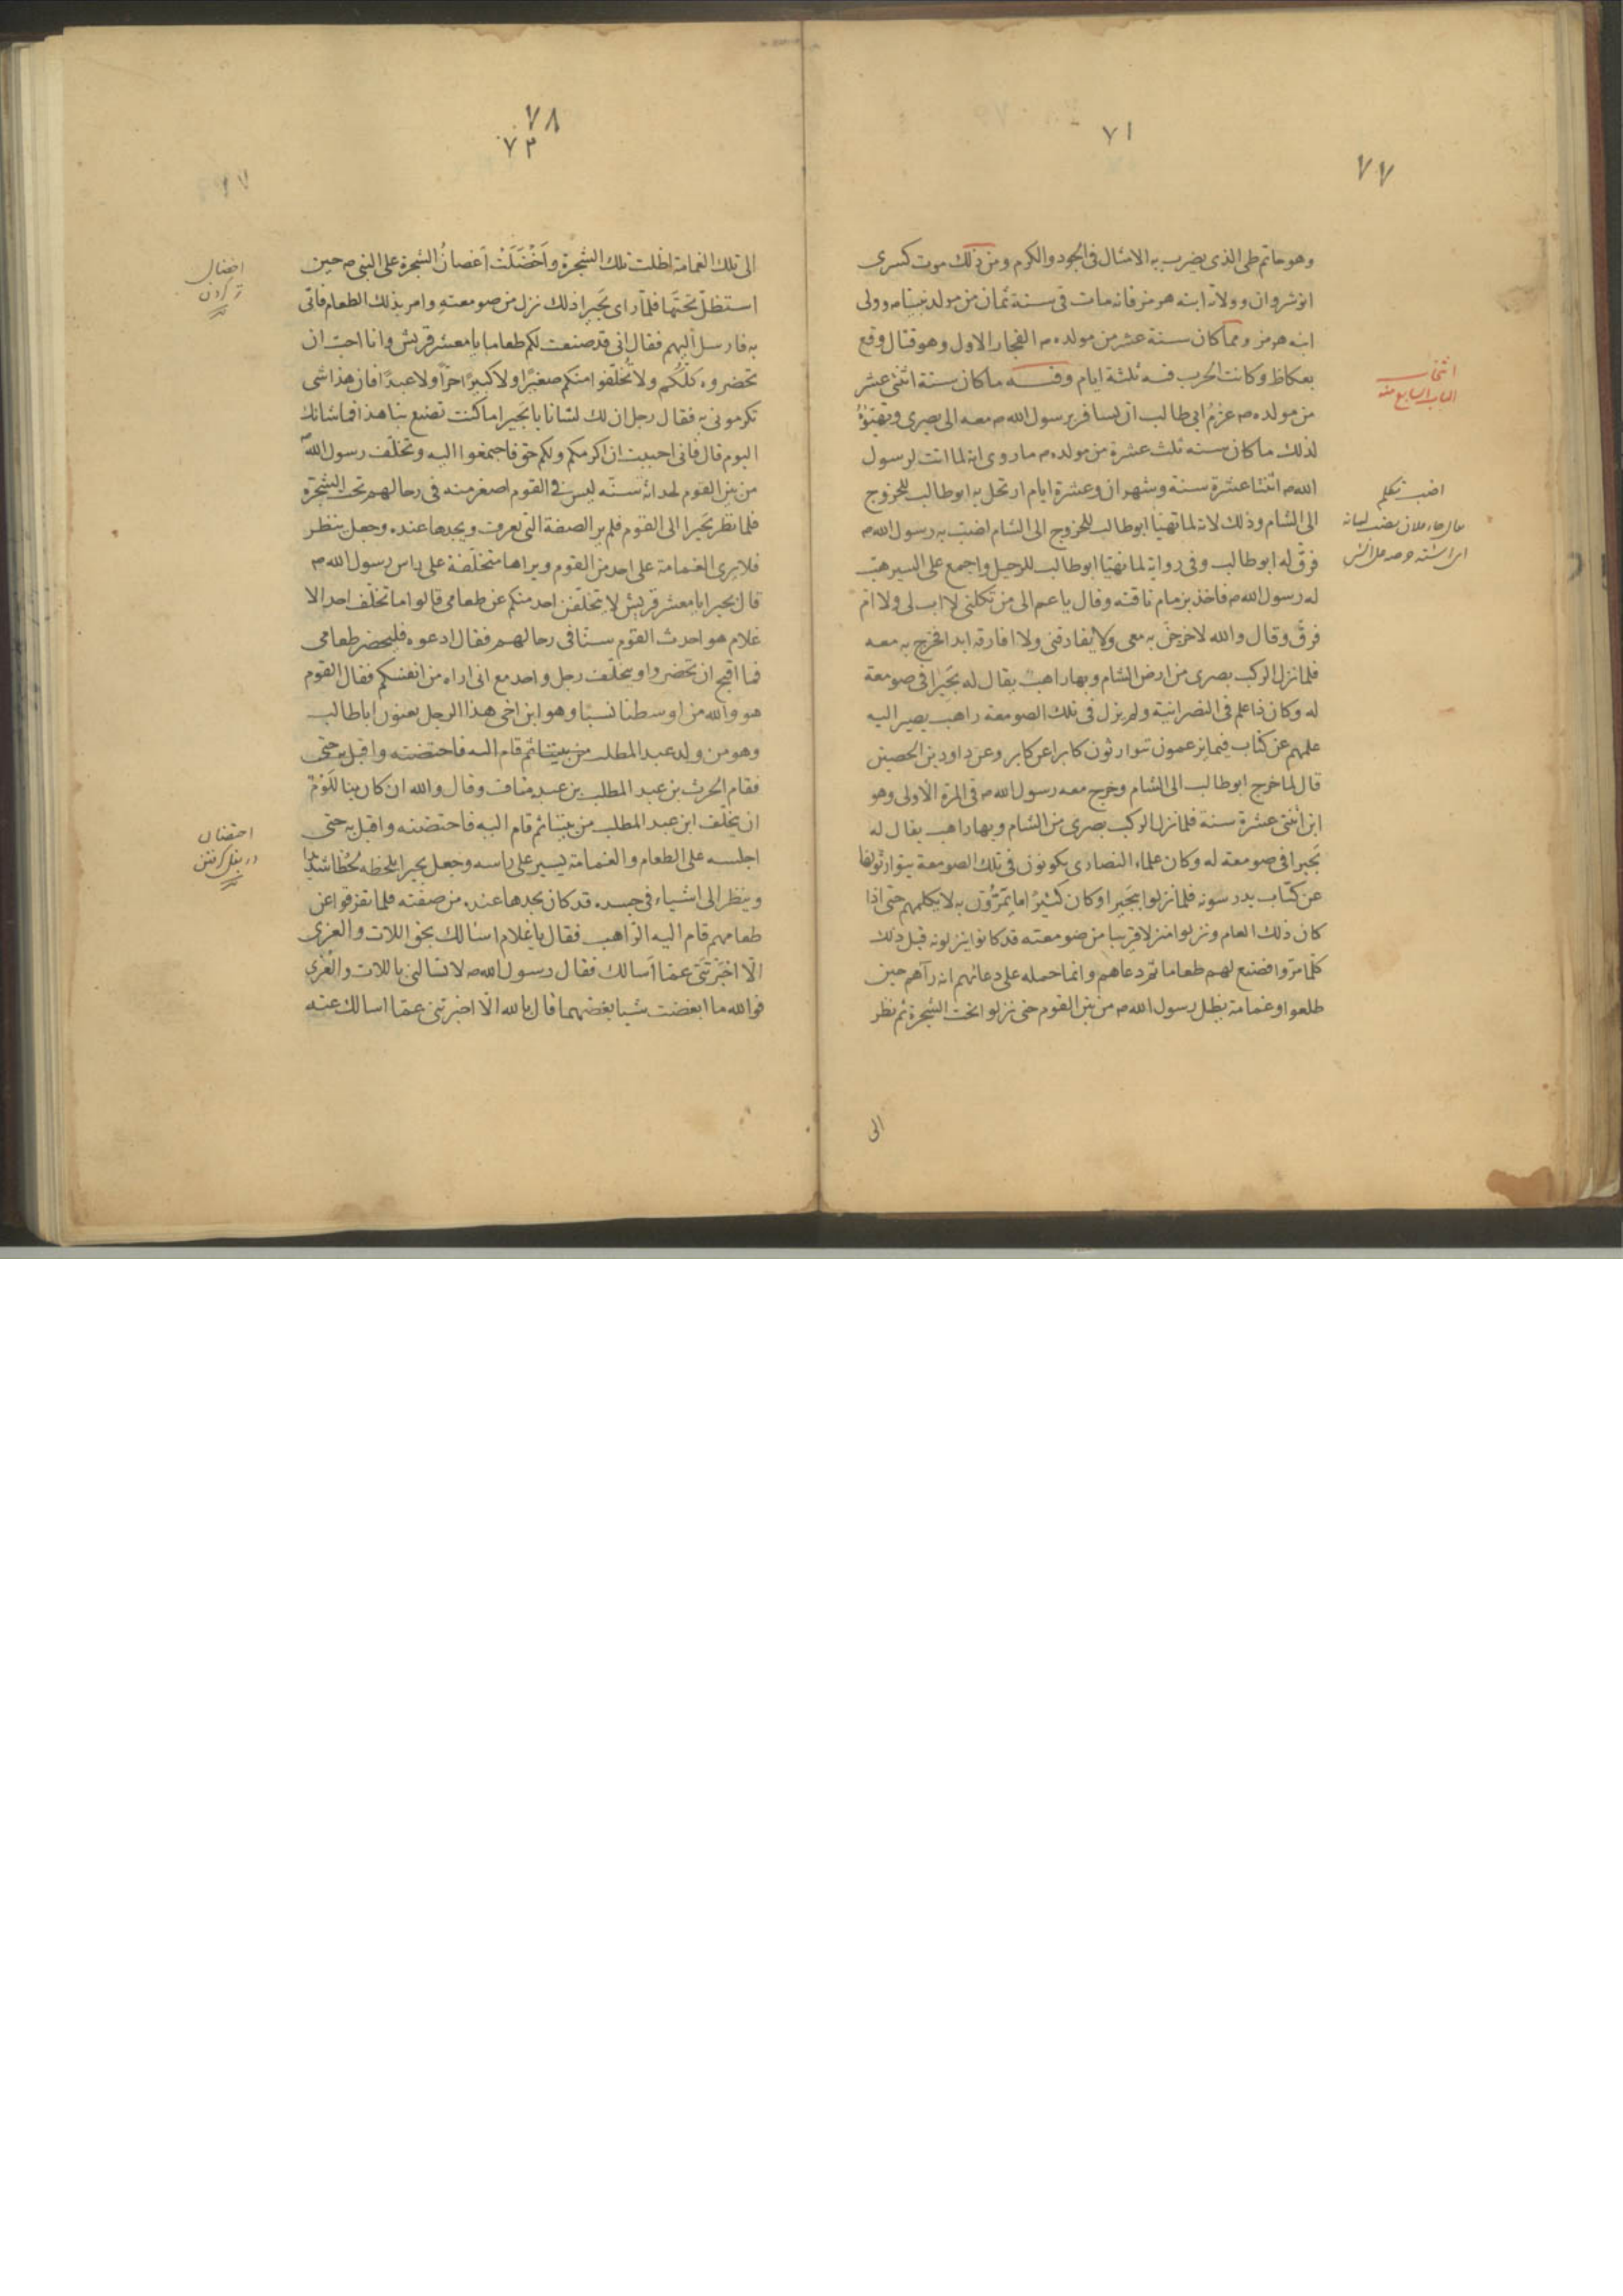 ٧٧
٧١
وهو حاتم طى الذى يضرب به الامثال فى الجود والكرم ومن ذلك موت كسرى
انوشروان وولاته ابنه هومز فانه مات فى سنة ثمان من مولد نبيناص وولى
ابنه هرمز ومما كان سنة عشر من مولده ص الفجار الاول وهو قتال وقع
بعكاظ وكانت الحرب فيه ثلثة ايام وفيه ما كان سنة اثنتى عشر
من مولده ص عزم ابى طالب ان يسافر برسول الله ص معه الى بصرى وتهيؤ
لذلك ما كان سنه ثلث عشرة من مولده ص ما روى انه لما اتت لرسول
الله ص اثنتا عشرة سنة وشهران وعشرة ايام ارتحل به ابو طالب للخروج
الى الشام وذلك لانه لما تهيا ابو طالب للخروج الى الشام اضبّ به رسول الله ص
فرقّ له ابو طالب وفى رواية لما تهيا ابو طالب للرحيل واجمع على السير هبّ
له رسول الله ص فاخذ بزمام ناقته وقال يا عم الى من تكلنى لا اب لى ولا ام
فرقّ وقال والله لاخرجن به معى ولا يفارقنى ولا افارقه ابدا فخرج به معه
فلما نزل الركب بصرى من ارض الشام وبها راهب يقال له بَحيرا فى صومعة
له وكان ذا علم فى النصرانية ولم يزل فى تلك الصومعة راهب يصير اليه
علمهم عن كتاب فيما يزعمون يتوارثون كابرا عن كابر وعن داود بن الحصين
قال لما خرج ابو طالب الى الشام وخرج معه رسول الله ص فى المرة الاولى وهو
ابن اثنتى عشرة سنة فلما نزل الركب بصرى من الشام وبها راهب يقال له
بَحيرا فى صومعة له وكان علماء النصارى يكونون فى تلك الصومعة يتوارثونها
عن كتاب يدرسونه فلما نزلوا ببَحيرا وكان كثيرًا ما يَمُرّون به لا يكلمهم حتى اذا
كان ذلك العام ونزلوا منزلا قريبا من صومعته قد كانوا ينزلونه قبل ذلك
كلّما مرّوا فصنع لهم طعاما ثم دعاهم وانما حمله على دعائهم انه رآهم حين
طلعوا وغمامة يظل رسول الله ص من بين القوم حتى نزلوا تحت الشجرة ثم نظر
الى
انتخاب
الباب السابع منه
اضب تكلم
٧٨
٧٣
الى تلك الغمامة اظلت تلك الشجرة واَخْضَلَّتْ اَغصانُ الشجرة على النبى ص حين
استظلّ تحتها فلمّا راى بَحيرا ذلك نزل من صومعتهِ وامر بذلك الطعام فاتى
به فارسل اليهم فقال انى قد صنعت لكم طعاما يا معشر قريش وانا احبّ ان
تحضروه كلّكم ولا تُخلّفوا منكم صغيرًا ولا كبيرًا حرّاً ولا عبدًا فان هذا شى
تكرمونى به فقال رجل ان لك لشانا يا بَحيرا ما كنت تصنع بنا هذا فما شانك
اليوم قال فانى احببت ان اكرمكم ولكم حق فاجتمعوا اليه وتخلّف رسول الله ص
من بين القوم لحداثة سنّه ليس فى القوم اصغر منه فى رحالهم تحت الشجرة
فلما نظر بَحيرا الى القوم فلم ير الصفة التى يعرف ويجدها عنده وجعل ينظر
فلا يرى الغمامة على احد من القوم ويراها متخلّفة على راس رسول الله ص
قال بحيرا يا معشر قريش لا يتخلّفن احد منكم عن طعامى قالوا ما تخلّف احد الا
غلام هو احدث القوم سنّا فى رحالهم فقال ادعوه فليحضر طعامى
فما اقبح ان تحضروا ويتخلّف رجل واحد مع انى اراه من انفسكم فقال القوم
هو والله من اوسطنا نسبًا وهو ابن اخى هذا الرجل يعنون ابا طالب
وهو من ولد عبد المطلب من بيننا ثم قام اليه فاحتضنه واقبل به حتى
فقام الحرث بن عبد المطلب بن عبد مناف وقال والله ان كان بنا لَلَومٌ
ان يخلّف ابن عبد المطلب من بيننا ثم قام اليه فاحتضنه واقبل به حتى
اجلسه على الطعام والغمامة يسير على راسه وجعل بحيرا يلحظه لَحظًا شديدا
وينظر الى اشياء فى جسده قد كان يجدها عنده من صفته فلما تفرقوا عن
طعامهم قام اليه الراهب فقال يا غلام اسئالك بحق اللات والعزى
الّا اخبَرْتَنى عمّا اَسالك فقال رسول الله ص لا تسالنى باللات والعُزى
فوالله ما ابغضت شيئا بغضهما قال بالله الّا اخبرتنى عمّا اسالك عنه
اخضال
تر كردن
احتضان
در بغل گرفتن